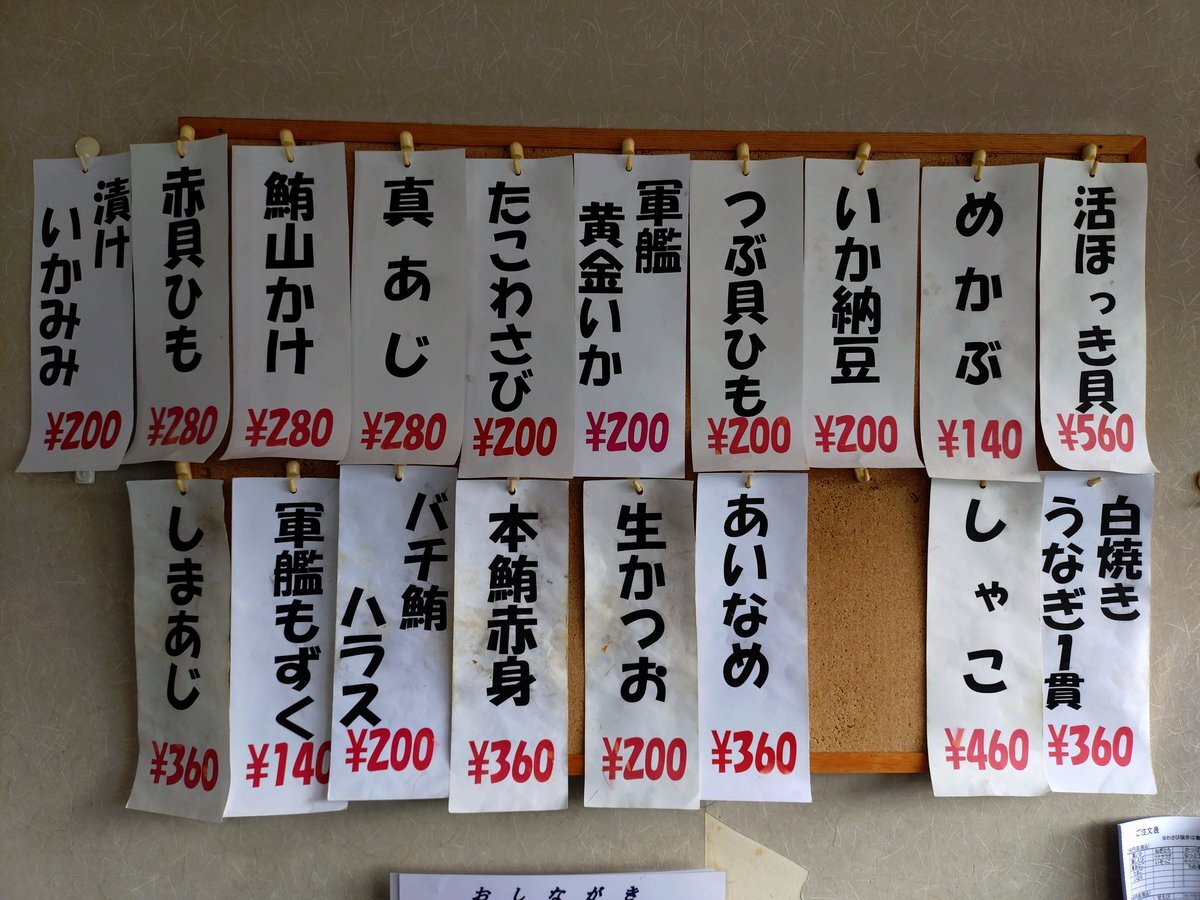 活ほっき貝
¥560
めかぶ
¥140
いか納豆
¥200
つぶ貝ひも
¥200
軍艦
黄金いか
¥200
たこわさび
¥200
真あじ
¥280
鮪山かけ
¥280
赤貝ひも
¥280
漬け
いかみみ
¥200
白焼き
うなぎ1貫
¥360
しゃこ
¥460
あいなめ
¥360
生かつお
¥200
本鮪赤身
¥360
バチ鮪
ハラス
¥200
軍艦もずく
¥140
しまあじ
¥360
おしながき
ご注文表